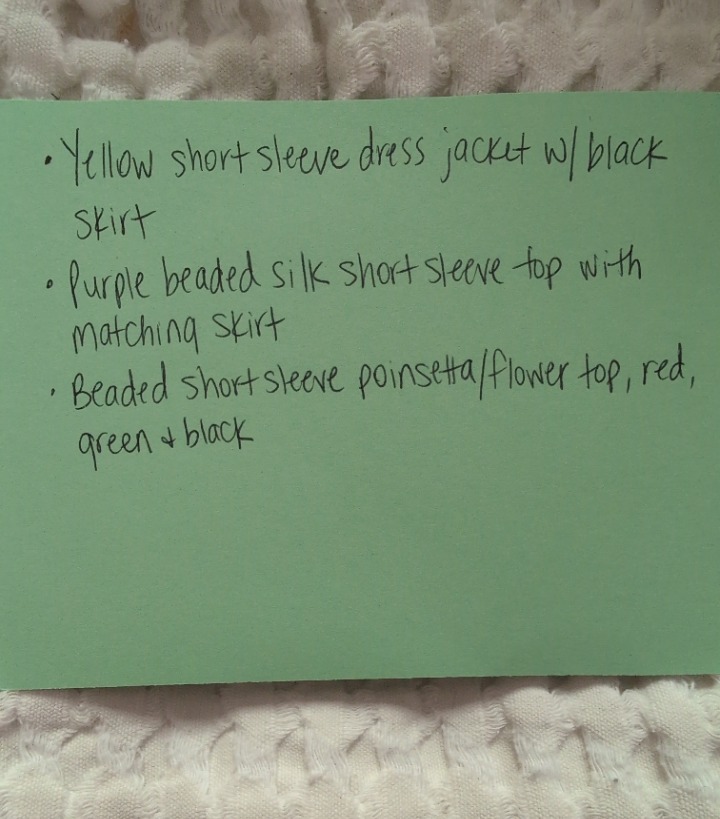 • Yellow short sleeve dress jacket w/ black
skirt
• Purple beaded silk short sleeve top with
matching skirt
• Beaded short sleeve poinsetta/flower top, red,
green & black